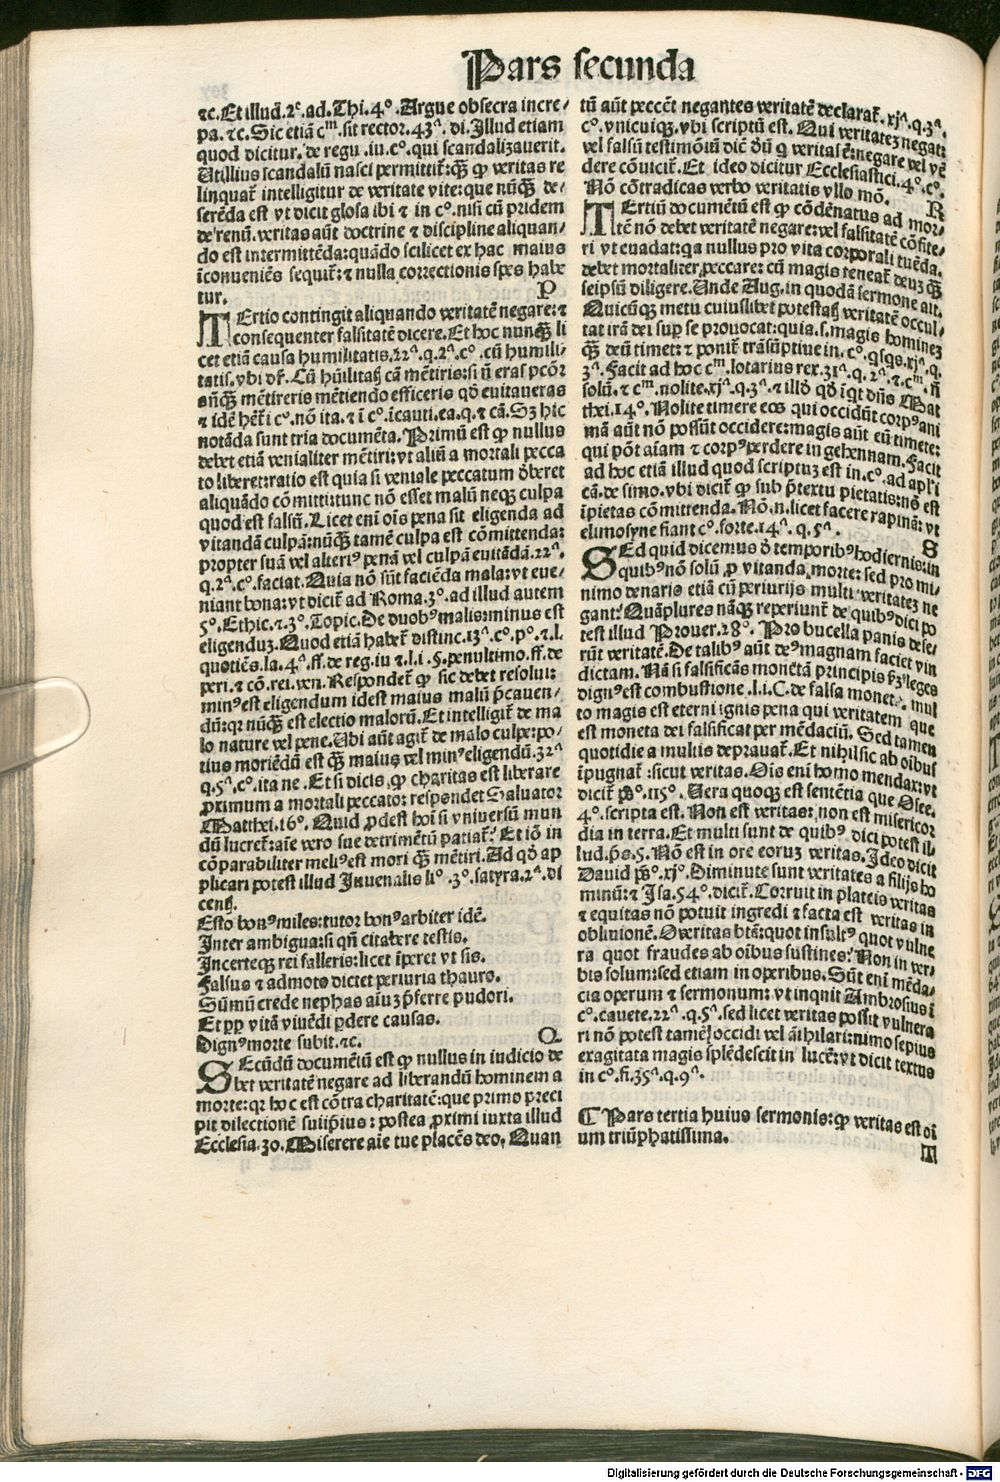 Pars secunda
⁊c. Et illud. 2ͨ. ad. Thi. 4°. Argue obsecra incre⸗
pa. ⁊c. Sic etiā cᵐ. sit rector. 43ᵃ. di. Illud etiam
quod dicitur. de regu. iu. c°. qui scandalizauerit.
Utillius scandalū nasci permittit᷑: qȝ̄ ꝙ veritas re
linquat᷑ intelligitur de veritate vite: que nūqȝ̄ de⸗
serēda est vt dicit glosa ibi ⁊ in c°. nisi cū pridem
de renū. veritas aūt doctrine ⁊ discipline aliquan⸗
do est intermittēda: quādo scilicet ex hac maius
īconueniēs sequit᷑: ⁊ nulla correctionis spes habe
tur. P
TErtio contingit aliquando veritatē negare: ⁊
consequenter falsitatē dicere. Et hoc nunqȝ̄ li
cet etiā causa humilitatis. 22ᵃ. q. 2ᵃ. c°. cū humili⸗
tatis. vbi dr̄. Cū hūilitatꝭ cā mētiris: si ū eras pcōr
anqȝ̄ mētireris mētiendo efficeris qd̄ euitaueras
⁊ idē hēt᷑ i c°. nō ita. ⁊ ī c°. īcauti. ea. q. ⁊ cā. Sȝ hic
notāda sunt tria documēta. Primū est ꝙ nullus
debet etiā venialiter mētiri: vt aliū a mortali pecca
to liberet: ratio est quia si veniale peccatum d̄beret
aliquādo cōmitti: tunc nō esset malū neqȝ culpa
quod est falsū. Licet eni oīs pena sit eligenda ad
vitandā culpā: nūqȝ̄ tamē culpa est cōmittenda:
propter suā vel alteriꝰ penā vel culpā euitādā. 22ᵃ.
q. 2ᵃ. c°. faciat. Quia nō sūt faciēda mala: vt eue⸗
niant bona: vt dicit᷑ ad Roma. 3°. ad illud autem
5°. Ethic. ⁊. 3°. Topic. De duobꝰ malis: minus est
eligenduȝ. Quod etiā habet᷑ distinc. 13ᵃ. c°. p°. ⁊. l.
quotiēs. la. 4ᵃ. ff. de reg. iu ⁊. l. i. §. penultimo. ff. de
peri. ⁊ cō. rei. ven. Respondet᷑ ꝙ sic debet resolui:
minꝰ est eligendum idest maius malū p̄cauen⸗
dū: qr nūqȝ̄ est electio malorū. Et intelligit᷑ de ma
lo nature vel pene. Ubi aūt agit᷑ de malo culpe: po⸗
tius moriēdū est qȝ̄ maiꝰ vel minꝰ eligendū. 32ᵃ
q. 5ᵃ. c°. ita ne. Et si dicis ꝙ charitas est liberare
ꝓximum a mortali peccato: respondet Saluator
Matthei. 16°. Quid ꝓdest hoī si vniuersū mun
dū lucret᷑: aīe vero sue detrimētū patiat᷑? Et iō in
cōparabiliter meliꝰ est mori qȝ̄ mētiri. Ad qd̄ ap
plicari potest illud Iuuenalis li°. 3°. satyra. 2ᵃ. di
centꝭ.
Esto bonꝰ miles: tutor bonꝰ arbiter idē.
Inter ambigua: si qn̄ citabere testis.
Incerteqȝ rei falleris: licet īperet vt sis.
Falsus ⁊ admoto dictet periuria thauro.
Sūmū crede nephas aīuȝ p̄ferre pudori.
Et ppͥ vitā viuēdi ꝑdere causas.
Dignꝰ morte subit. ⁊c. Q
SEcūdū documētū est ꝙ nullus in iudicio de
bet veritatē negare ad liberandū hominem a
morte: qr hoc est cōtra charitatē: que primo preci
pit dilectionē suiipiꝰ: postea ꝓximi iuxta illud
Ecclesia. 30. Miserere aīe tue placēs deo. Quan
tū aūt peccēt negantes veritatē declarat᷑. xjᵃ. q. 3ᵃ.
c°. vnicuiqȝ. vbi scriptū est. Qui veritateȝ negat:
vel falsū testimōiū dic̄ dū q̄ veritas ē: negare vel vē
dere cōuicit᷑. Et ideo dicitur Ecclesiastici. 4°. c°.
Nō cōtradicas verbo veritatis vllo mō. R
TErtiū documētū est ꝙ cōdēnatus ad mor⸗
tē nō debet veritatē negare: vel falsitatē cōfite⸗
ri vt euadat: qa nullus pro vita corporali tuēda.
debet mortaliter peccare: cū magis teneat᷑ deuȝ qȝ̄
seipsū diligere. Unde Aug. in quodā sermone ait.
Quicūqȝ metu cuiuslibet potestatꝭ veritatē occul⸗
tat irā dei suꝑ se prouocat: quia. s. magis hominez
qȝ̄ deū timet: ⁊ ponit᷑ trāsūptiue in. c°. qsqs. xjᵃ. q.
3ᵃ. Facit ad hoc cᵐ. lotarius rex. 31ᵃ. q. 2ᵃ. ⁊ cᵐ. ñ
solū. ⁊ cᵐ. nolite. xjᵃ. q. 3ᵃ. ⁊ illd̄ qd̄ īqt dn̄s Mat
thei. 14°. Nolite timere eos qui occidūt corpꝰ ani
mā aūt nō possūt occidere: magis aūt eū timete:
qui pōt aīam ⁊ corpꝰ perdere in gehennam. Facit
ad hoc etiā illud quod scriptuȝ est in. c°. ad apl'i
cā. de simo. vbi dicit᷑ ꝙ sub p̄textu pietatis: nō est
īpietas cōmittenda. Nō. n. licet facere rapinā: vt
elimosyne fiant c°. forte. 14ᵃ. q. 5ᵃ. S
SEd quid dicemus d̄ temporibꝰ hodiernis: in
quibꝰ nō solū ꝓ vitanda morte: sed pro mi⸗
nimo denario etiā cū periurijs multi veritateȝ ne
gant? Quāplures nāqȝ reperiunt᷑ de quibꝰ dici po
test illud Prouer. 28°. Pro bucella panis dese⸗
rūt veritatē. De talibꝰ aūt deꝰ magnam faciet vin
dictam. Nā si falsificās monetā principis ẜȝ leges
dignꝰ est combustione. l. i. C. de falsa monet. mul
to magis est eterni ignis pena qui veritatem que
est moneta dei falsificat per mēdaciū. Sed tamen
quotidie a multis deprauat᷑. Et nihil sic ab oībus
īpugnat᷑: sicut veritas. Oīs enī homo mendax: vt
dicit᷑ pͦs. 115°. Uera quoqȝ est sentētia que Osee.
4°. scripta est. Non est veritas: non est misericor
dia in terra. Et multi sunt de quibꝰ dici potest il⸗
lud. p̄s. 5. Nō est in ore eoruȝ veritas. Ideo dicit
Dauid pͦs. xj°. Diminute sunt veritates a filijs ho
minū: ⁊ Isa. 54°. dicit᷑. Corruit in plateis veritas
⁊ equitas nō potuit ingredi ⁊ facta est veritas in
obliuionē. O veritas btā: quot insultꝰ quot vulne
ra quot fraudes ab oībus sustines? Non in ver⸗
bis solum: sed etiam in operibus. Sūt enī mēda⸗
cia operum ⁊ sermonum: vt inquit Ambrosius ī
c°. cauete. 22ᵃ. q. 5ᵃ. sed licet veritas possit vulnera
ri nō potest tamē occidi vel āīhilari: nimo sepius
exagitata magis splēdescit in lucē: vt dicit textus
in c°. fi. 35ᵃ. q. 9ᵃ.
¶ Pars tertia huius sermonis: ꝙ veritas est oī
um triūphatissima.
T
Digitalisierung gefördert durch die Deutsche Forschungsgemeinschaft - DFG